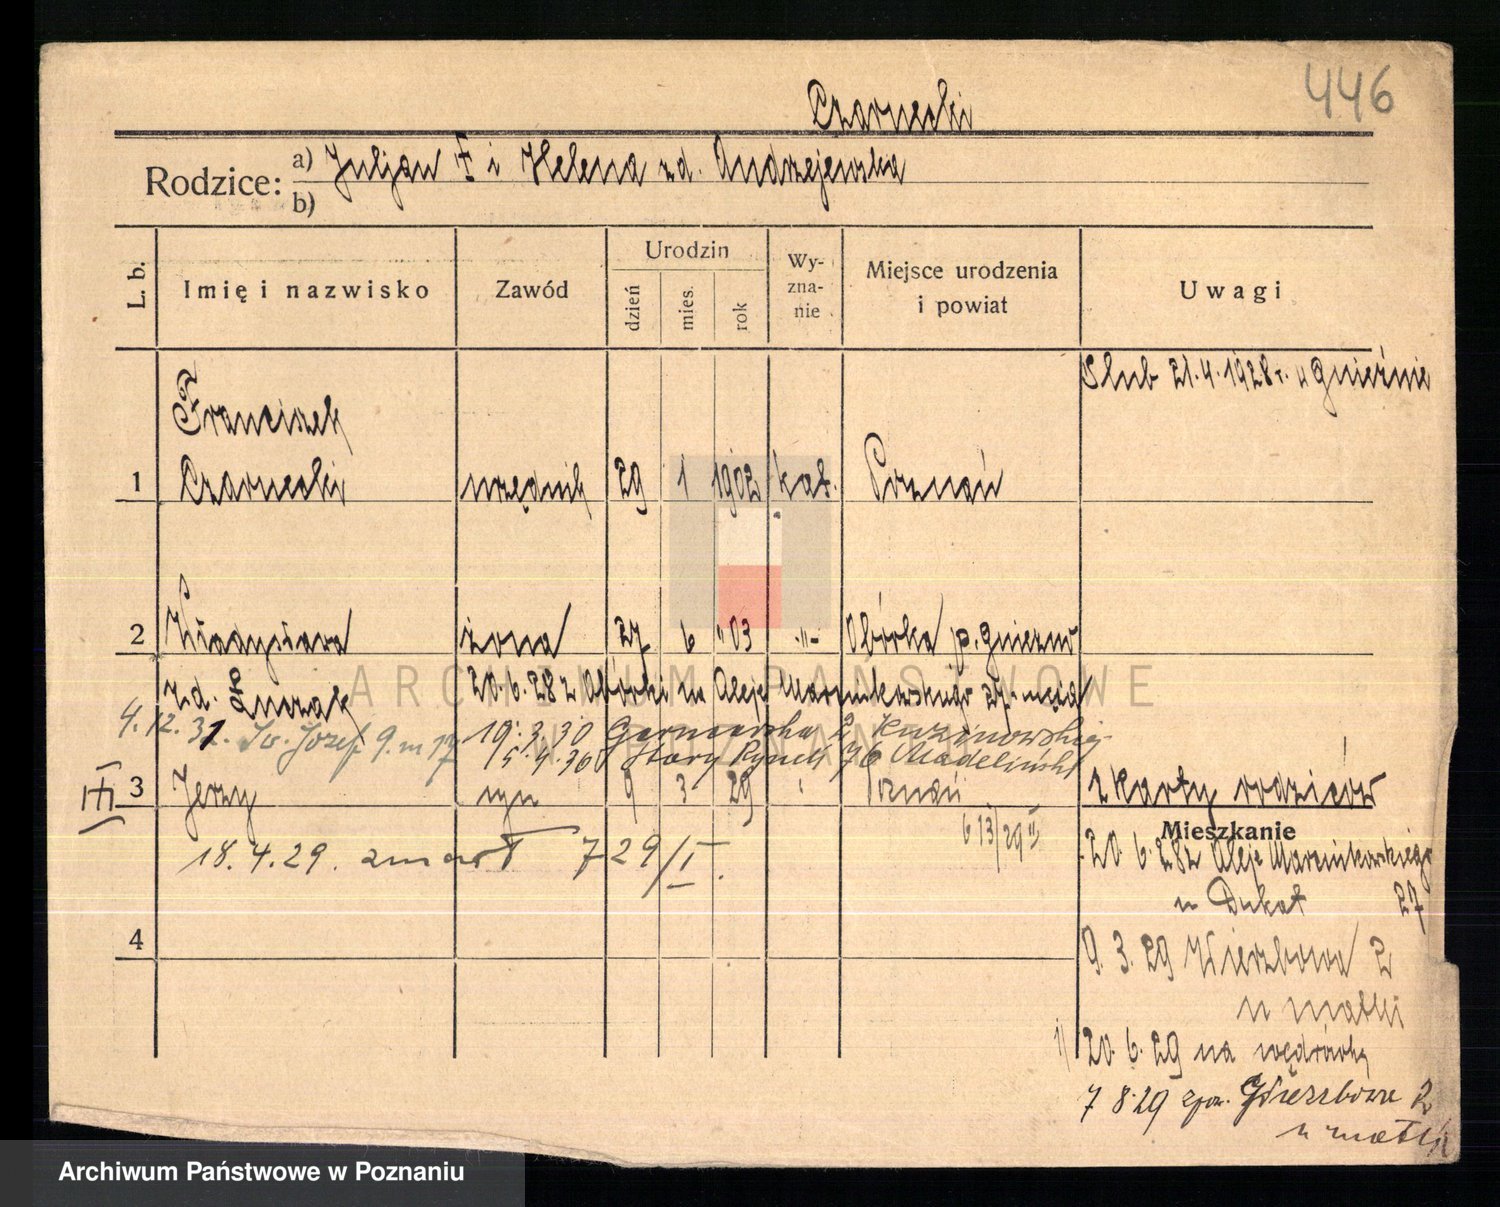 446
Czarnecki
Rodzice: a) Juljan † i Helena zd. Andrzejewska
b)
L. b. Imię i nazwisko Zawód Urodzin dzień mies. rok Wy-zna-nie Miejsce urodzenia i powiat Uwagi
Ślub 21.4.1928 r. w Gnieźnie
Franciszek
1 Czarnecki urzędnik 29 1 1902 kat. Poznań
2 Władysława żona 27 6 "03 -"- Obórka p. Gniezno
zd. 20.6.28 z Obórki na Aleje Marcinkowskiego 27. męża
4.12.31. Św. Józef 9. m 17 19.3.30 Garncarska 2
5.4.30 Stary Rynek 76 Madeliński
III 3 Jerzy syn 9 3 29 Poznań z karty rodziców
613/29
18.4.29. zmarł 729/I.
Mieszkanie
20.6.28 z Aleje Marcinkowskiego
u Dukat 27
4
9.3.29 Wierzbowa 2
u matki
20.6.29 na wędrówkę
7 8.29 Wierzbowa 2
u matki
ARCHIWUM PAŃSTWOWE
W POZNANIU
Archiwum Państwowe w Poznaniu